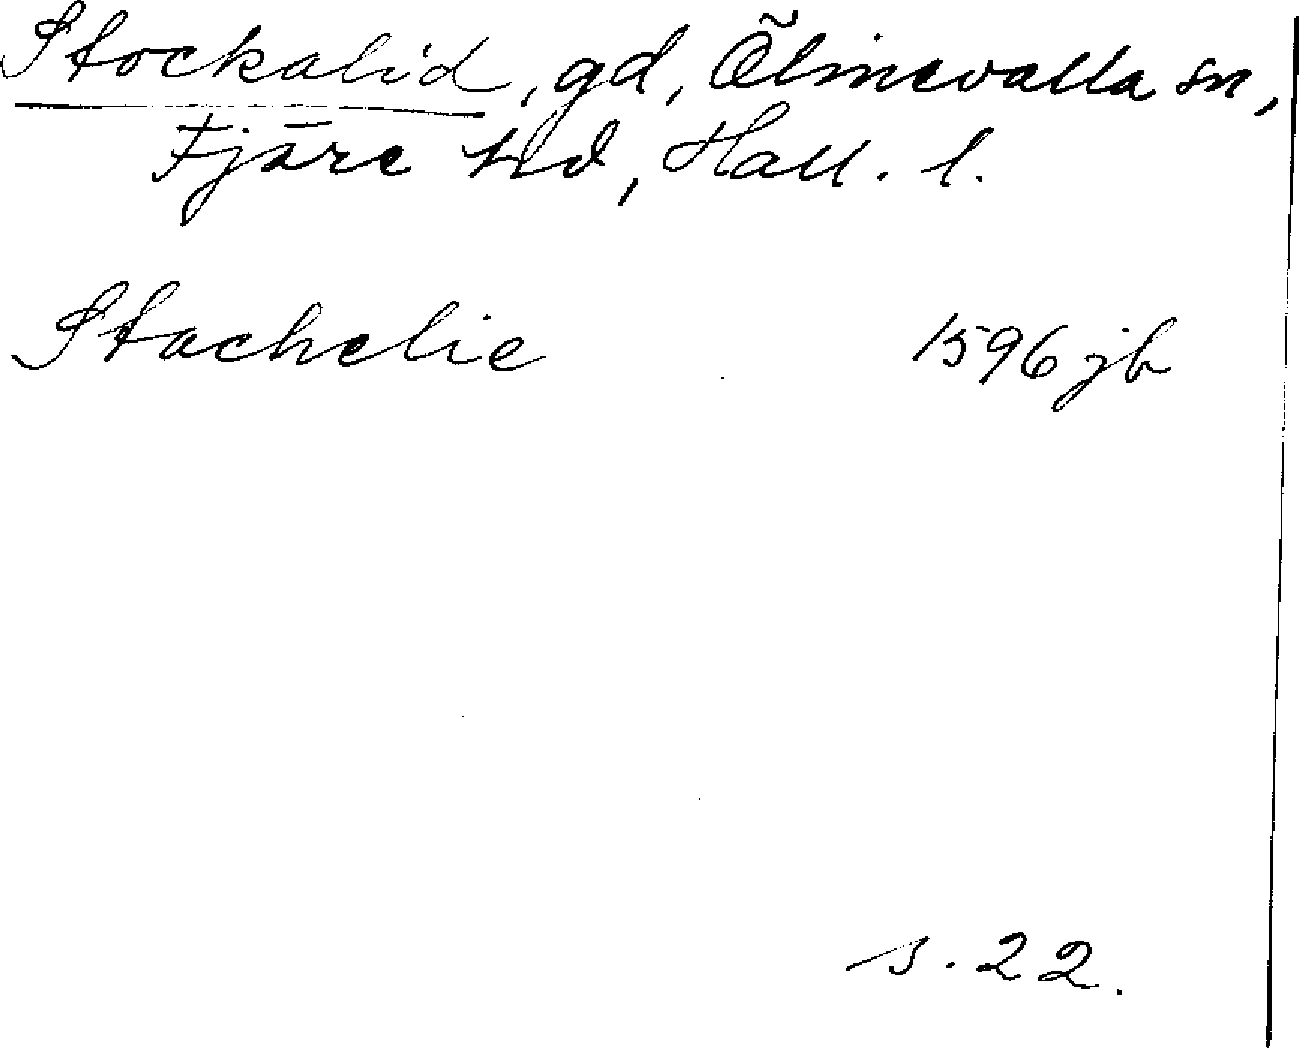 Stockalid, gd, Ölmevalla sn,
Fjäre hd, Hall. l.
Stachelie 1596 jb
s. 22.